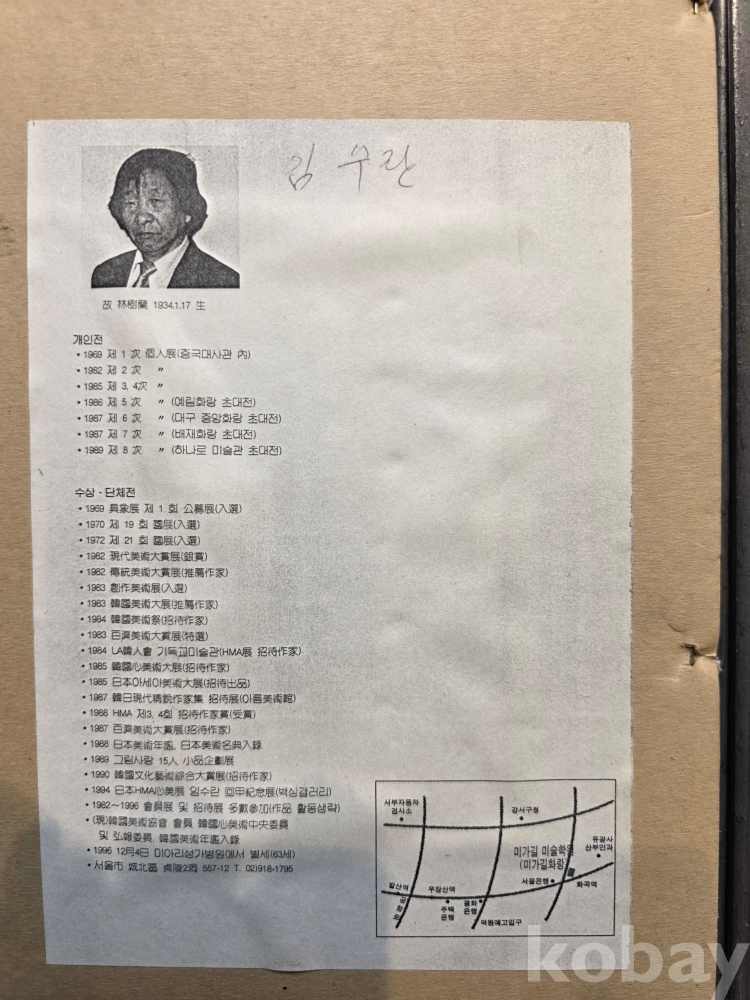 임 수란
故 林樹蘭 1934.1.17 生
개인전
• 1969 제 1 次 個人展(중국대사관 內)
• 1982 제 2 次 〃
• 1985 제 3, 4次 〃
• 1986 제 5 次 〃 (예림화랑 초대전)
• 1987 제 6 次 〃 (대구 중앙화랑 초대전)
• 1987 제 7 次 〃 (배재화랑 초대전)
• 1989 제 8 次 〃 (하나로 미술관 초대전)
수상 · 단체전
• 1969 具象展 제 1 회 公募展(入選)
• 1970 제 19 회 國展(入選)
• 1972 제 21 회 國展(入選)
• 1982 現代美術大賞展(銀賞)
• 1982 傳統美術大賞展(推薦作家)
• 1983 創作美術展(入選)
• 1983 韓國美術大展(推薦作家)
• 1984 韓國美術祭(招待作家)
• 1983 百濟美術大賞展(特選)
• 1984 LA韓人會 기독교미술관(HMA展 招待作家)
• 1985 韓國心美術大展(招待作家)
• 1985 日本아세아美術大展(招待出品)
• 1987 韓日現代精銳作家集 招待展(아름美術館)
• 1988 HMA 제3, 4회 招待作家賞(受賞)
• 1987 百濟美術大賞展(招待作家)
• 1988 日本美術年鑑, 日本美術名典入錄
• 1989 그림사랑 15人 小品企劃展
• 1990 韓國文化藝術綜合大賞展(招待作家)
• 1994 日本HMA心美展 임수란 回甲紀念展(백상갤러리)
• 1982~1996 會員展 및 招待展 多數參加(作品 活動생략)
• (現)韓國美術協會 會員 韓國心美術中央委員
및 弘報委員, 韓國美術年鑑入錄
• 1996 12月4日 미아리성가병원에서 별세(63세)
• 서울市 城北區 貞陵2洞 557-12 T. 02)918-1795
서부자동차
검사소
강서구청
미가길 미술학원
(미가길화랑)
유광사
산부인과
서울은행
화곡역
발산역
우장산역
공항로
주택
은행
평화
은행
덕원예고입구
kobay